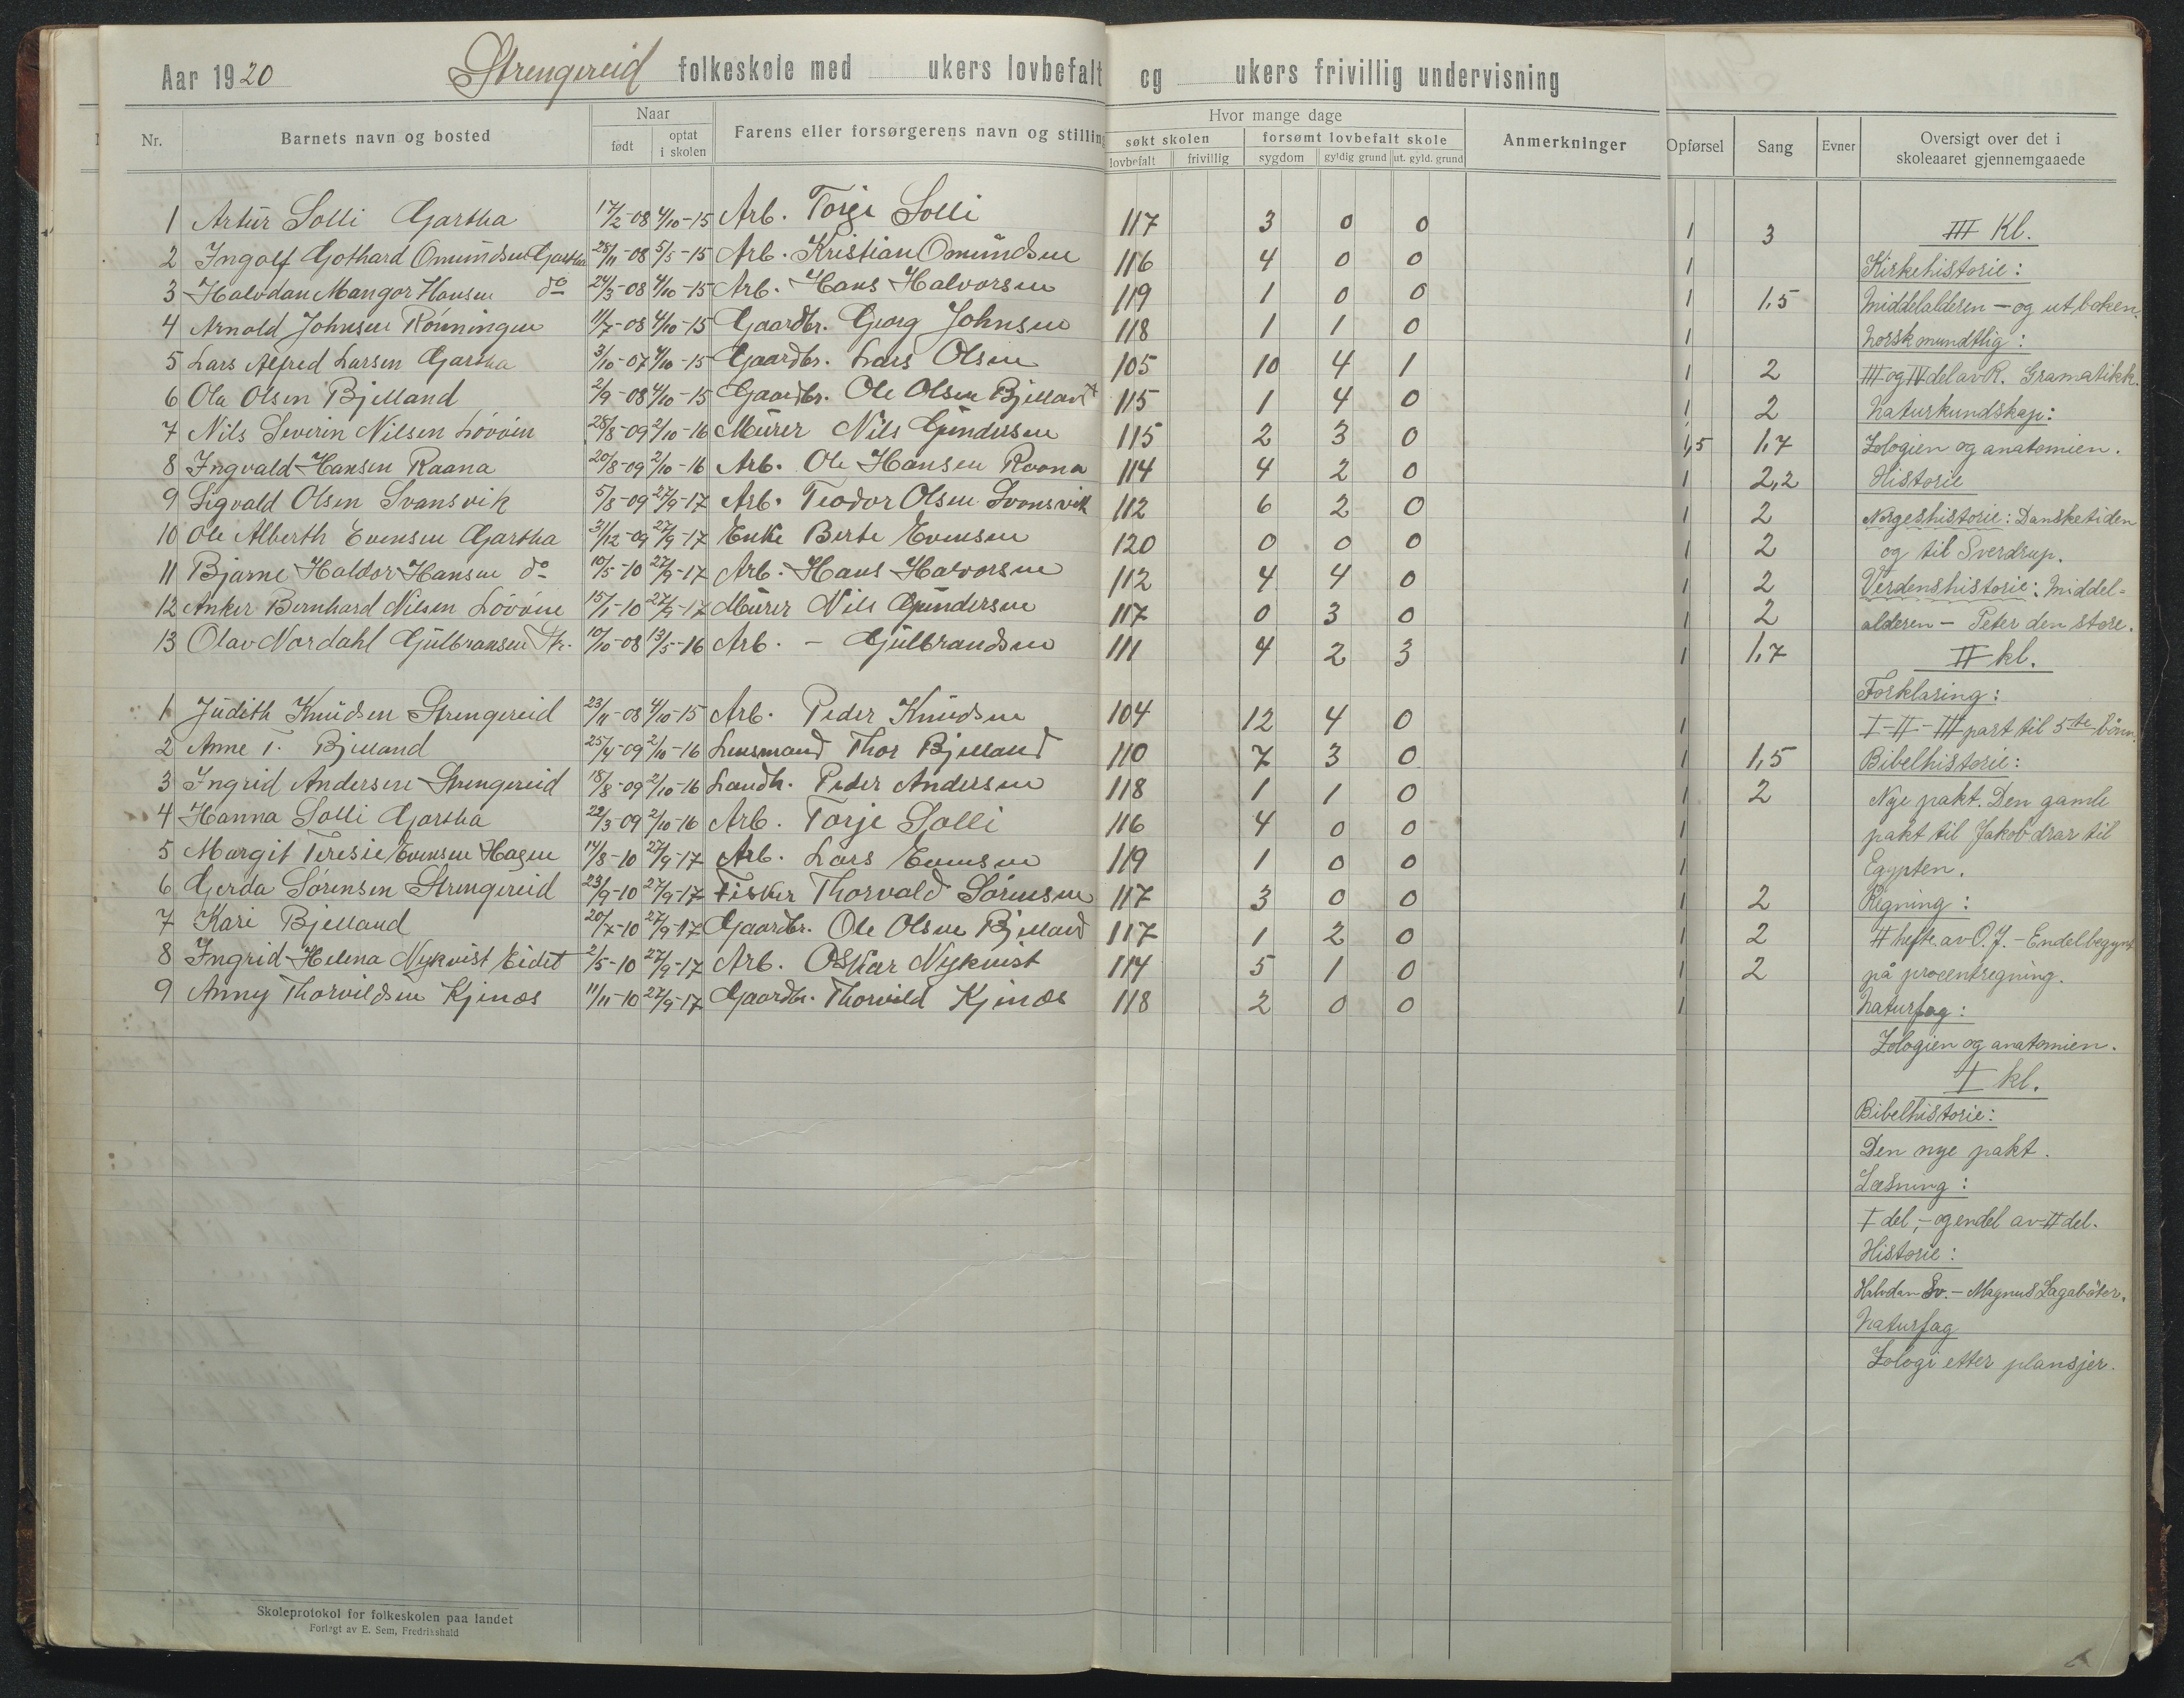 Aar 1920 Strengereid folkeskole med ukers lovbefalt og ukers frivillig undervisning
Nr. Barnets navn og bosted Naar født optat i skolen Farens eller forsørgerens navn og stilling Hvor mange dage søkt skolen lovbefalt frivillig forsømt lovbefalt skole sygdom gyldig grund ut. gyld. grund Anmerkninger Opførsel Sang Evner Oversigt over det i skoleaaret gjennemgaaede
1 Artur Solli Gartha 17/2-08 4/10-15 Arb. Torje Solli 117 3 0 0
2 Ingolf Gothard Omundsen Gartha 28/11-08 5/5-15 Arb. Kristian Omundsen 116 4 0 0
3 Halvdan Mangor Hansen do 24/3-08 4/10-15 Arb. Hans Halvorsen 119 1 0 0
4 Arnold Johnsen Rönningen 11/7-08 4/10-15 Gaardbr. Georg Johnsen 118 1 1 0
5 Lars Alfred Larsen Gartha 3/10-07 4/10-15 Gaardbr. Lars Olsen 105 10 4 1
6 Ole Olsen Bjelland 2/9-08 4/10-15 Gaardbr. Ole Olsen Bjelland 115 1 4 0
7 Nils Severin Nilsen 28/8-09 2/10-16 Murer Nils Gundersen 115 2 3 0
8 Ingvald Hansen Raana 20/8-09 2/10-16 Arb. Ole Hansen Raana 114 4 2 0
9 Sigvald Olsen Svansvik 5/8-09 27/9-17 Arb. Teodor Olsen Svansvik 112 6 2 0
10 Ole Alberth Evensen Gartha 31/12-09 27/9-17 Enke Berte Evensen 120 0 0 0
11 Bjarne Haldor Hansen do 10/5-10 27/9-17 Arb. Hans Halvorsen 112 4 4 0
12 Anker Bernhard Nilsen 15/1-10 27/9-17 Murer Nils Gundersen 117 0 3 0
13 Olav Nordahl Gulbransen Str. 10/10-08 13/5-16 Arb. - Gulbrandsen 111 4 2 3
1 Judith Knudsen Strengereid 23/11-08 4/10-15 Arb. Peder Knudsen 104 12 4 0
2 Anne T. Bjelland 25/4-09 2/10-16 Lensmand Thor Bjelland 110 7 3 0
3 Ingrid Andersen Strengereid 18/8-09 2/10-16 Landh. Peder Andersen 118 1 1 0
4 Hanna Solli Gartha 22/3-09 2/10-16 Arb. Torje Solli 116 4 0 0
5 Margit Teresie Evensen Hagen 14/8-10 27/9-17 Arb. Lars Evensen 119 1 0 0
6 Gerda Sørensen Strengereid 23/9-10 27/9-17 Fisker Thorvald Sørensen 117 3 0 0
7 Kari Bjelland 20/7-10 27/9-17 Gaardbr. Ole Olsen Bjelland 117 1 2 0
8 Ingrid Helena Nykvist Eidet 2/5-10 27/9-17 Arb. Oskar Nykvist 114 5 1 0
9 Anny Thorvildsen Kjenæs 11/11-10 27/9-17 Gaardbr. Thorvild Kjenæs 118 2 0 0
1 3 III Kl.
1 Kirkehistorie:
1 1,5 Middelalderen - og ut boken.
1 Norsk mundtlig:
1 2 III og IV del av R. Gramatikk.
1 2 Naturkundskap:
1,5 1,7 Zologien og anatomien.
1 2,2 Historie
1 2 Norgeshistorie: Dansketiden
1 2 og til Sverdrup.
1 2 Verdenshistorie: Middel-
1 2 alderen - Peter den store.
1 1,7 II kl.
Forklaring:
1 I-II-III part til 5te bönn.
1 1,5 Bibelhistorie:
1 2 Nye pakt. Den gamle
1 pakt til Jakob drar til
1 Egypten.
1 2 Regning:
1 2 II hefte av O.J. - Endel begynt
1 2 på procentregning.
1 Naturfag:
Zologien og anatomien.
I kl.
Bibelhistorie:
Den nye pakt.
Læsning:
I del, - og endel av II del.
Historie:
Halvdan Sv. - Magnus Lagabøter.
Naturfag
Zologi etter plansjer.
Skoleprotokol for folkeskolen paa landet
Forlagt av E. Sem, Fredrikshald